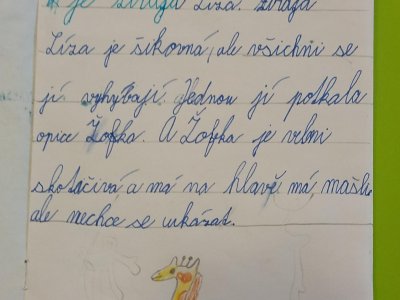 je žirafa Líza. žirafa
Líza je šikovná, ale všichni se
jí vyhýbají. Jednou jí potkala
opice Žofka. A Žofka je velmi
skotačivá, a má na hlavě má, mašli,
ale nechce se ukázat.